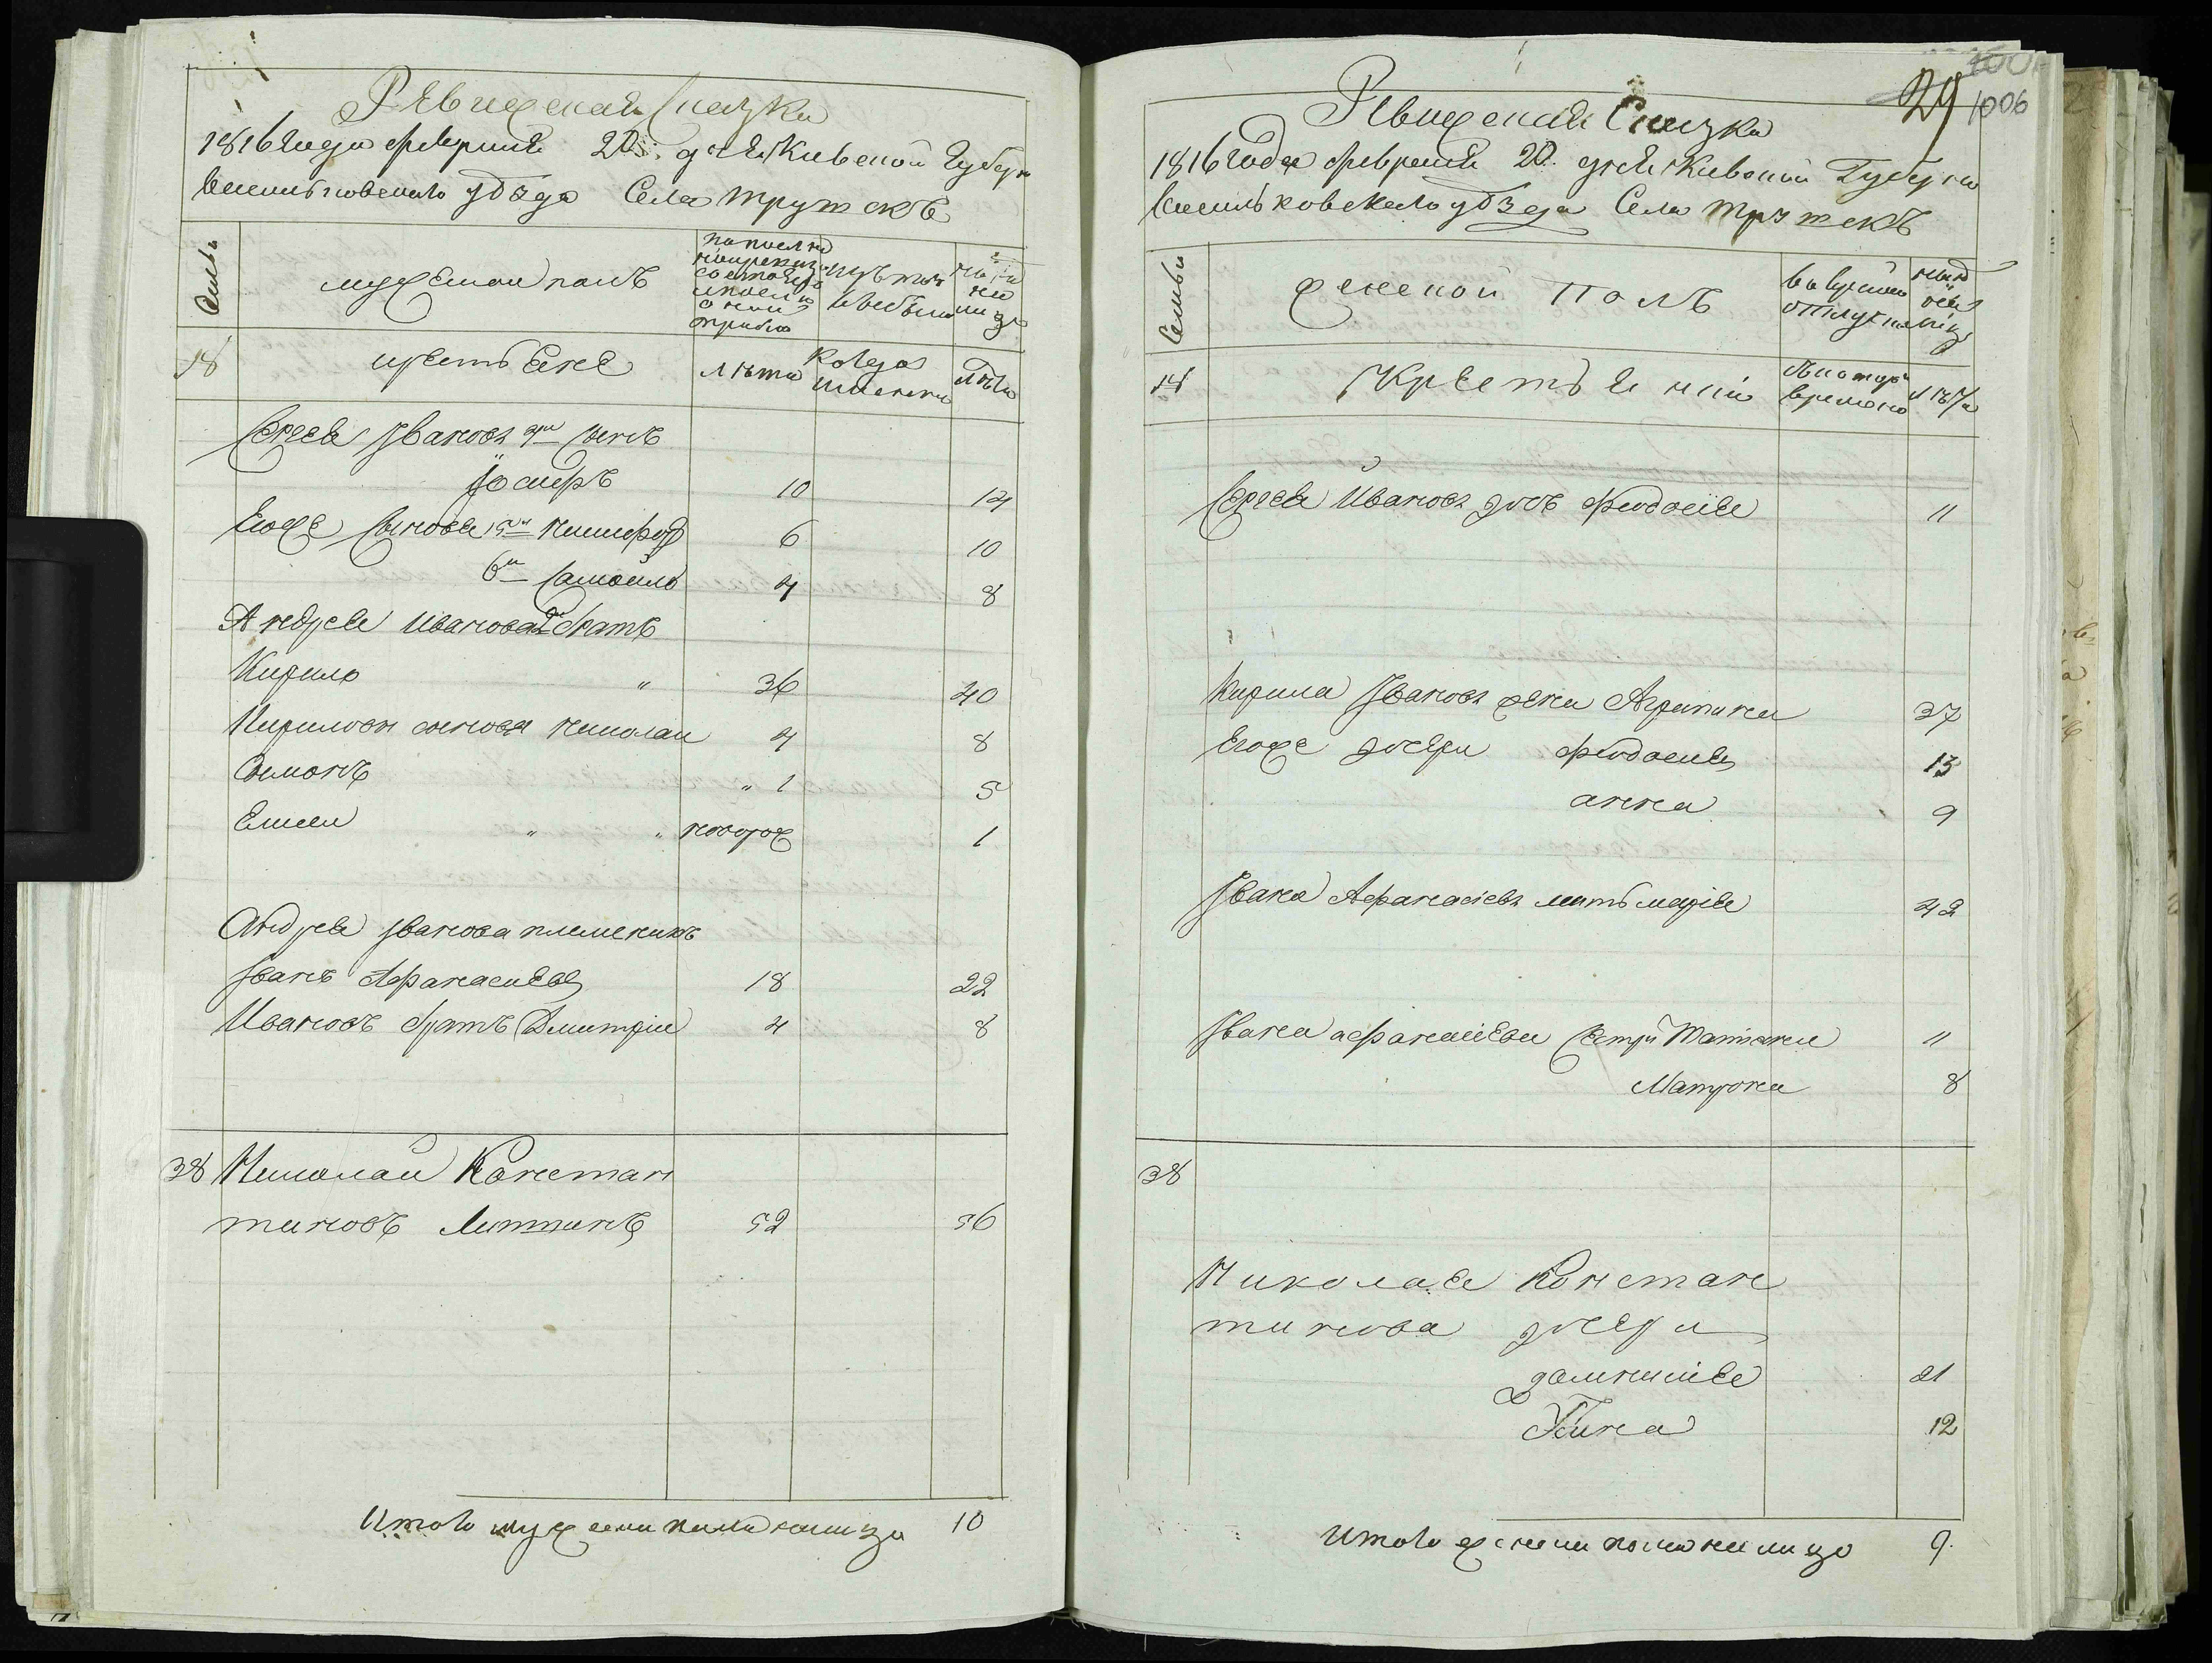 Ревижская Сказка
1816 года февраля 20: дня Киевской Губерн
Васильковскаго уѣзда Села Трушокъ
Семьи
мужескои полъ
по послед
ней ревизи
состояло
и после
оной
прибыло
изъ того
выбыло
ныне
на
лицо
18
крестьяне
лѣта
Когда
именно
лѣта
Сергея Иванова 4й сынъ
Иосифъ 10 14
Егоже сыновя 5й Никифоръ 6 10
6й Самойло 4 8
Андрея Иванова 2й братъ
Кирило " 36 40
Кириловы сыновя Николаи 4 8
Симонъ " 1 5
Елисеи " " новорож 1
Андрея Иванова племеникъ
Иванъ Афанасиевъ 18 22
Ивановъ братъ Дмитрiи 4 8
38 Николай Констан
тиновъ Литвинъ 52 56
Итого мужеска пола налицо 10
Ревижская Сказка
29
1006
1816 Года февраля 20. дня Киевской Губерни
Васильковскаго уѣзда Села Трушокъ
Семьи
женской полъ
во временной
отлучке
ныне
налицо
18
Крестьяне
Съ котораго
времени
лѣта
Сергея Иванова дочь Феодосiя 11
Кирила Иванова жена Агрипина 37
Егоже дочери Феодосия 13
анна 9
Ивана Афанасiева мать марiя 42
Ивана афанасiева сестри Татiяна 11
Матрона 8
38
Николая Констан
тинова дочери
домникiя 21
Нина 12
Итого женска пола на лицо 9.